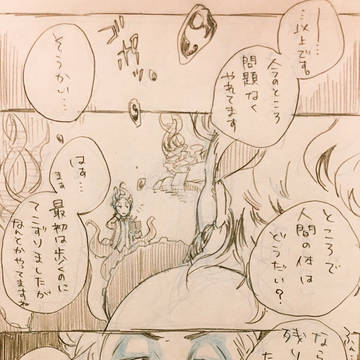 …以上です。
今のところ
問題なく
やれてます
そうかい…
ところで
人間の体は
どうだい？
はす…
まぁ
最初は歩くのに
てこずりましたが
なんとかやってますね